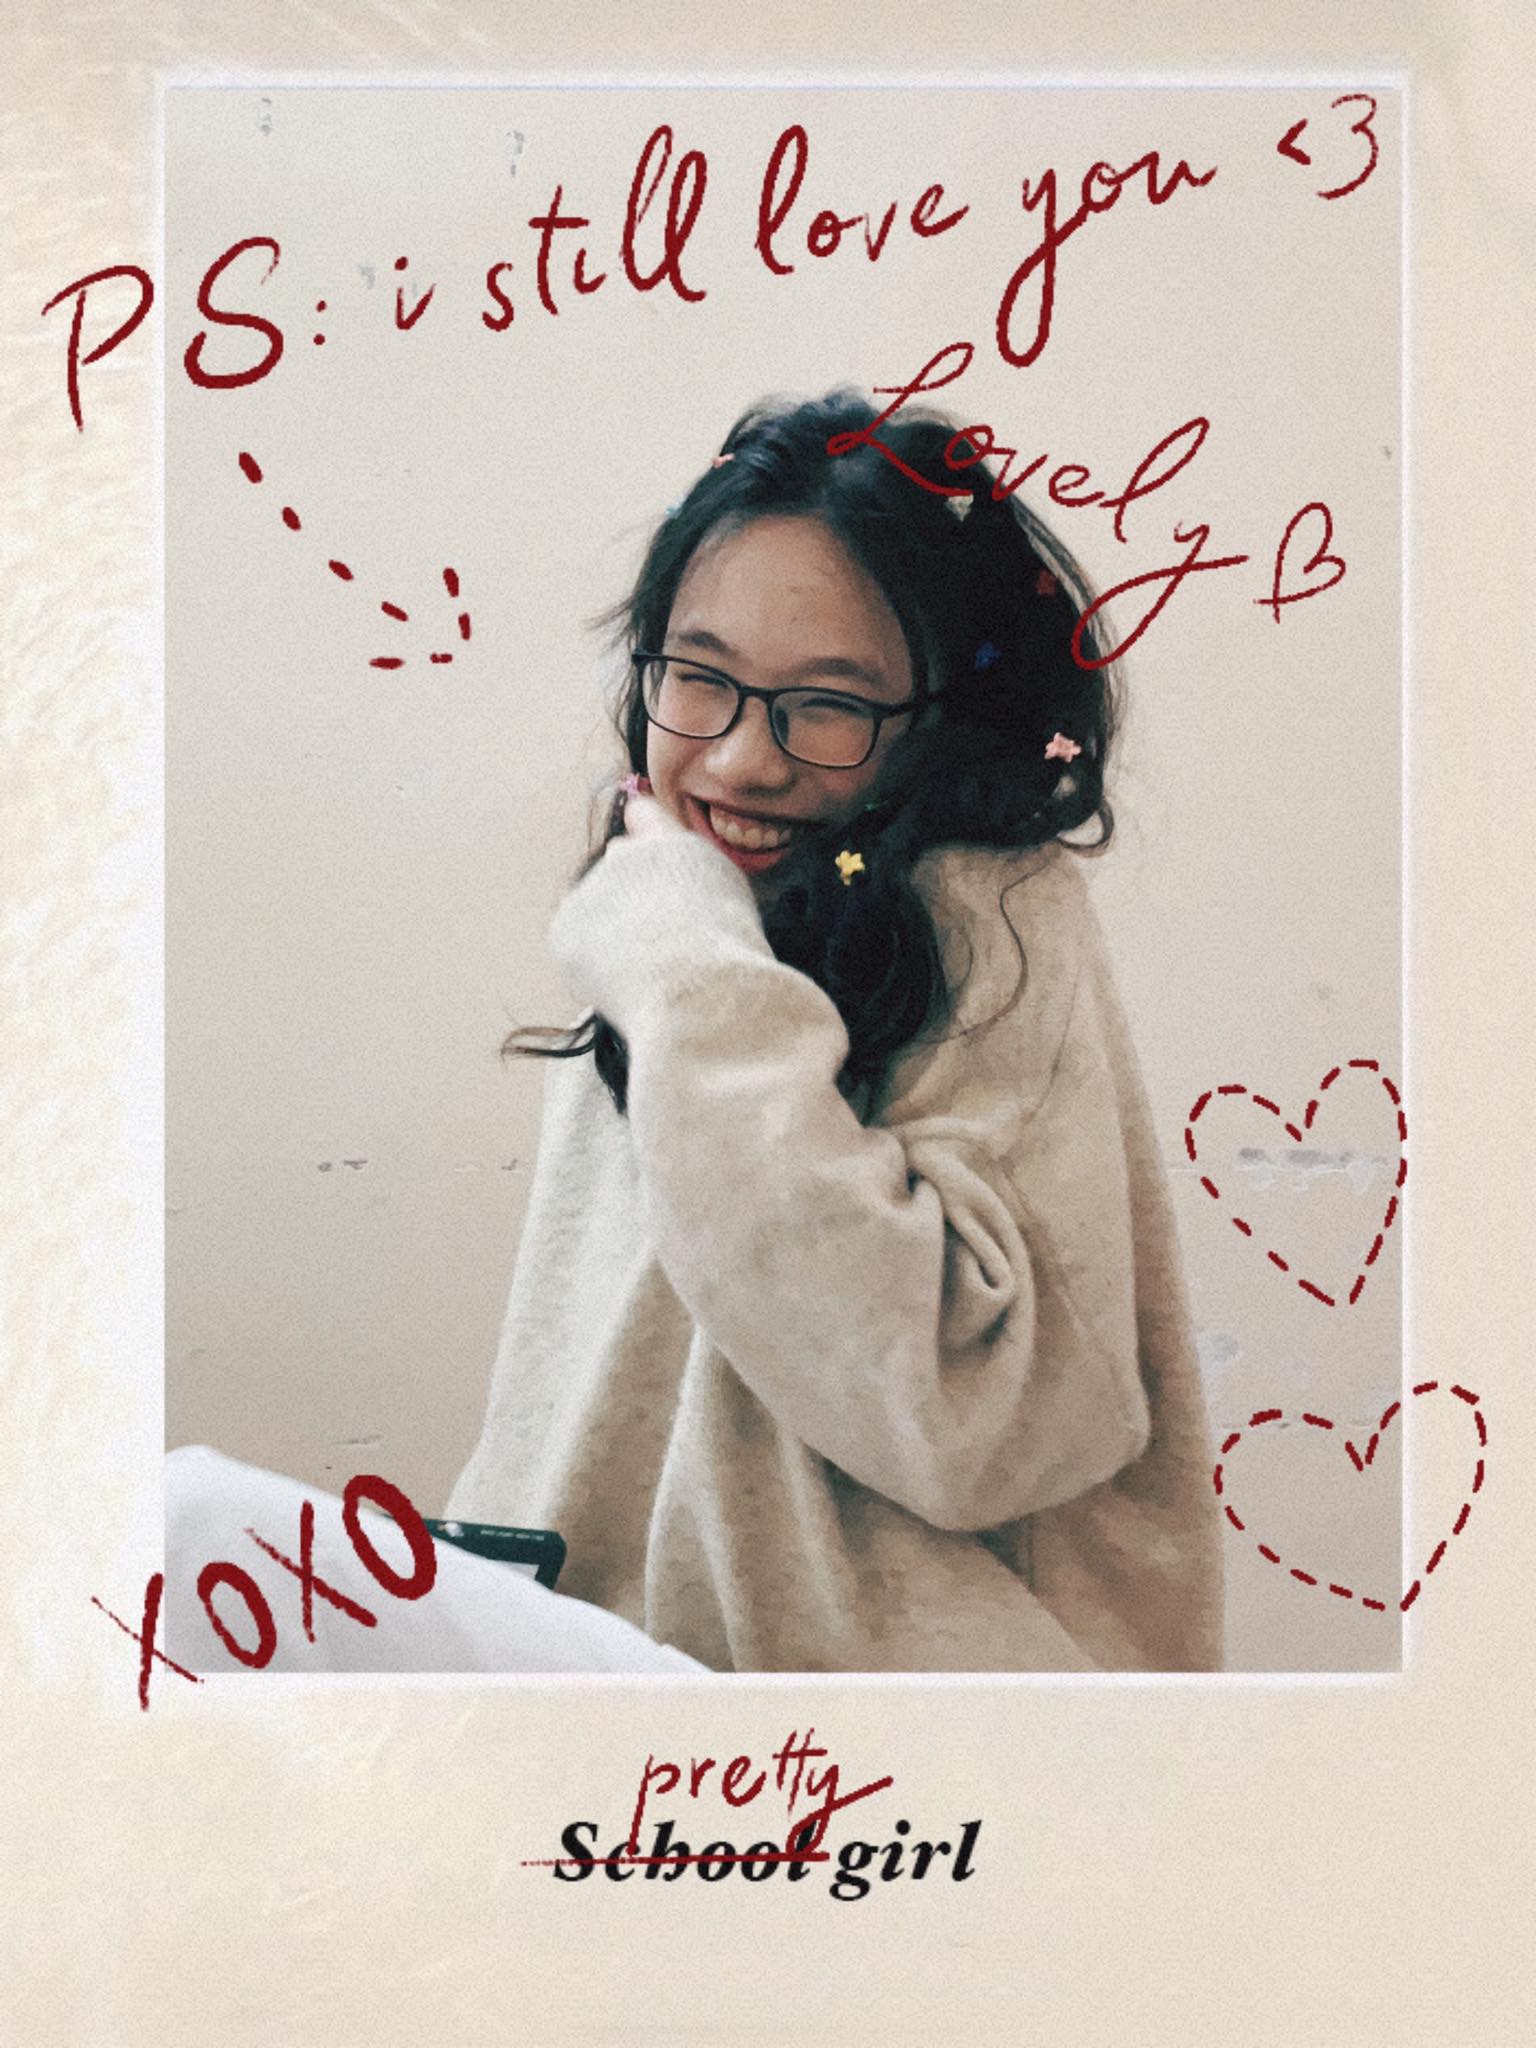 PS: i still love you <3
Lovely B
XOXO
pretty
School girl